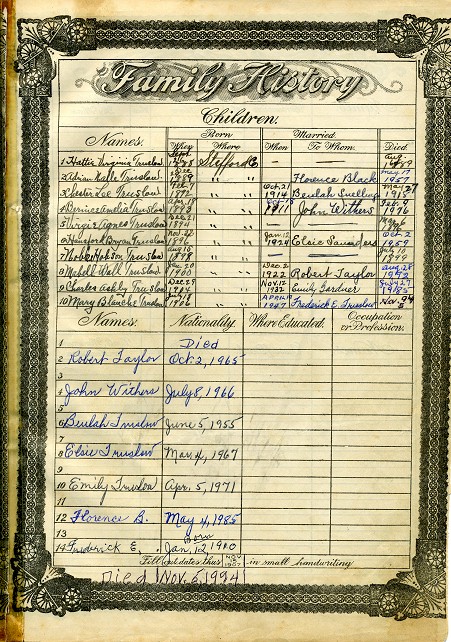 Family History
Children.
Names. Born When Where Married When To Whom. Died.
1 Hattie Virginia Truslow 1888 Stafford Co. — — Aug 1889
2 Adrian Truslow Dec 1889 " " Florence Black May 17 1957
3 Lester Lee Truslow Feb. 7 1892 " " Oct. 21 1914 Beulah Snelling
4 Bernice Amelia Truslow Apr. 18 1893 " " 1911 John Withers Feb. 9 1976
5 Virgie Agnes Truslow Dec. 21 1894 " "
6 Hansford Bryan Truslow Nov. 22 1896 " " Jan. 12 1924 Elsie Saunders Oct. 2 1959
7 Hobson Truslow Aug. 16 1898 " " July 13 1899
8 Mabell Wall Truslow Jan. 20 1900 " " Dec. 2 1922 Robert Taylor Aug. 28
9 Charles Ashby Truslow Dec. 29 " " Nov. 12 1932 Emily Gardner July 27 1985
10 Mary Blanche Truslow July 18 " " April 19 1947 Frederick E. Truslow Nov.
Names. Nationality. Where Educated. Occupation or Profession.
1 Died
2 Robert Taylor Oct. 2, 1965
3
4 John Withers July 8, 1966
5
6 Beulah Truslow June 5, 1955
7
8 Elsie Truslow Mar. 4, 1967
9
10 Emily Truslow Apr. 5, 1971
11
12 Florence B. May 4, 1985
13 Born
14 Frederick E. " Jan. 12, 1910
Fill out dates thus NOV 16 1907 in small handwriting
Died Nov. 5, 1994